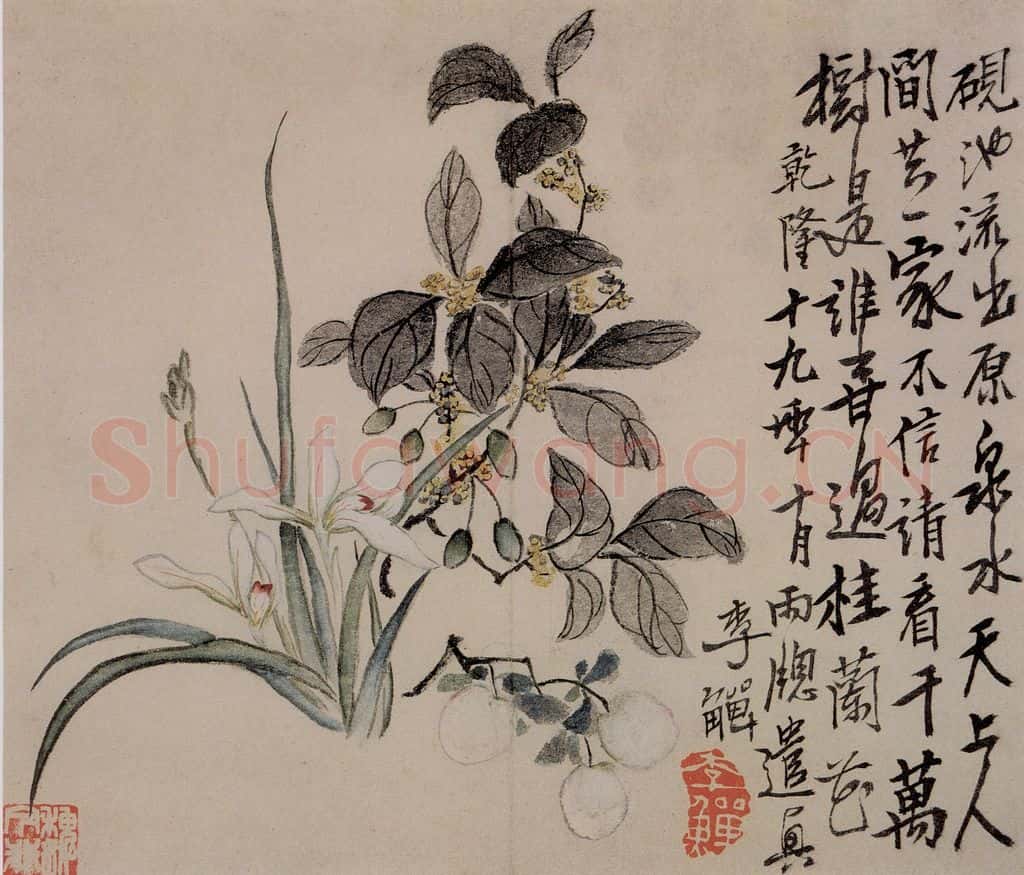 硯池流出原泉水天上人
間共一家不信請看千萬
樹是誰香過桂蘭花
乾隆十九年十月雨牕遣興
李鱓
李鱓
Shufawang.CN